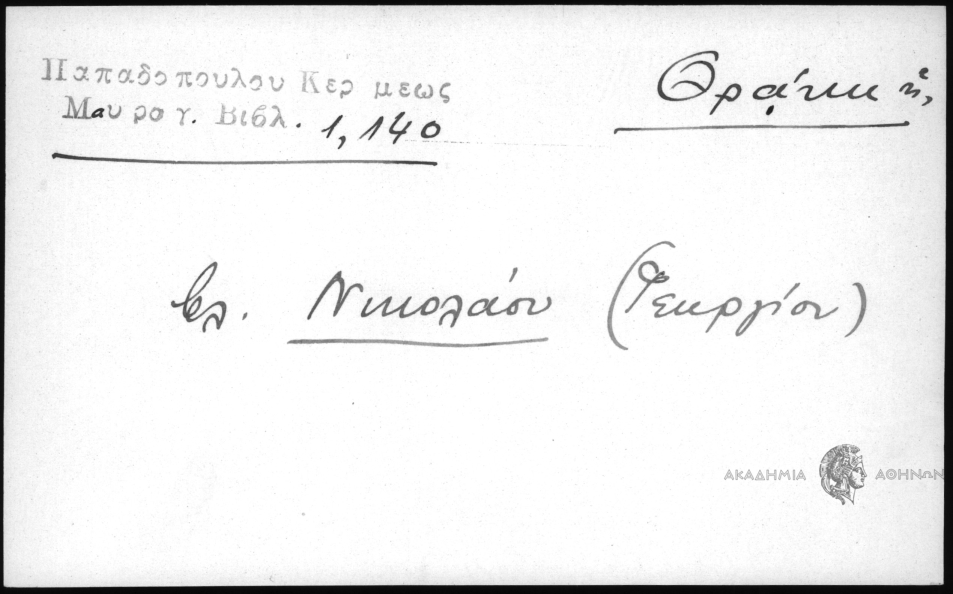 Παπαδοπουλου Κερ μεως
Μαυρογ. Βιβλ. 1,140
Βλ. Νικολάου (Γεωργίου)
ΑΚΑΔΗΜΙΑ ΑΘΗΝΩΝ